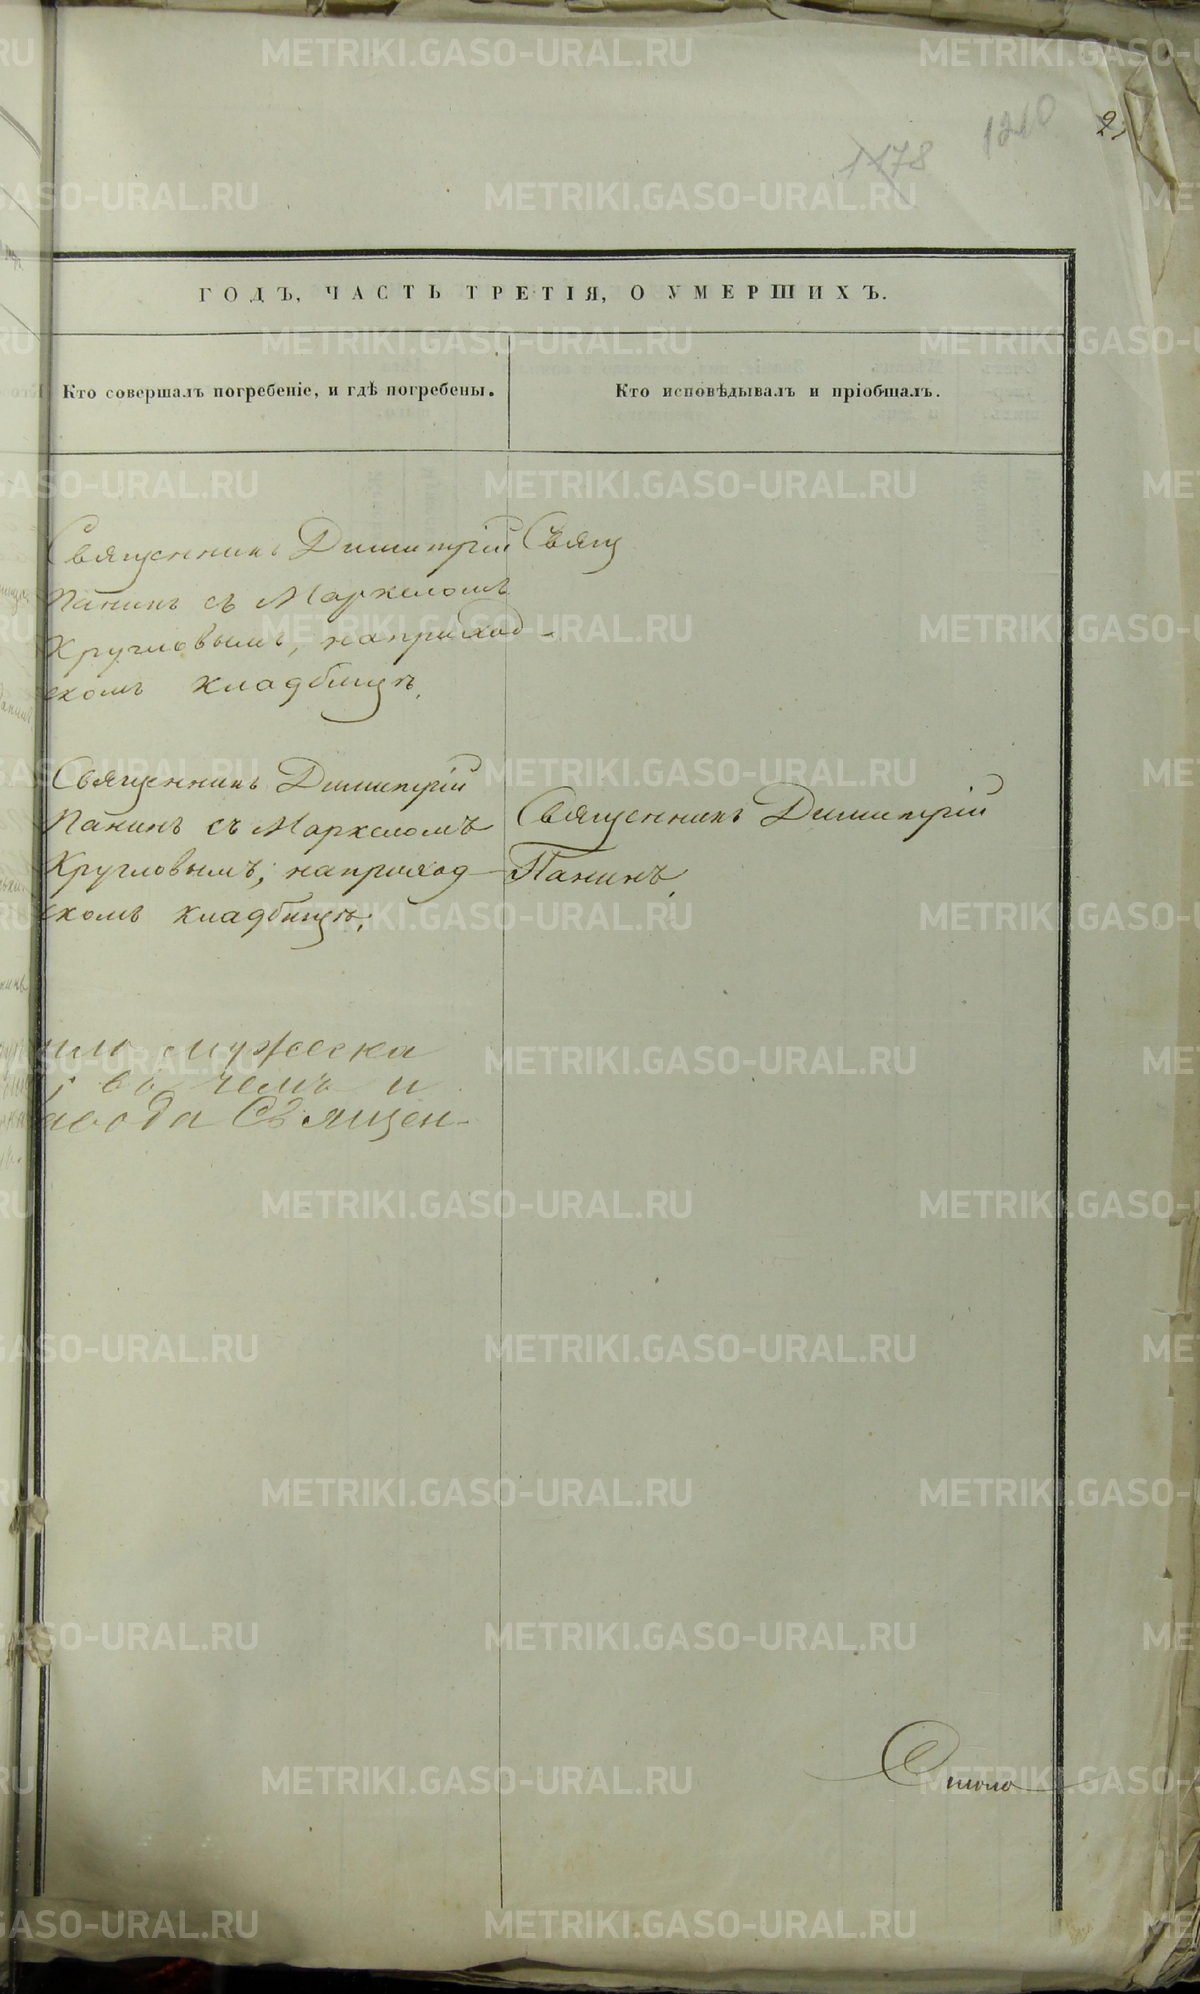 1210
1178
ГОДЪ, ЧАСТЬ ТРЕТІЯ, О УМЕРШИХЪ.
Кто совершалъ погребеніе, и гдѣ погребены.
Кто исповѣдывалъ и пріобщалъ.
Священникъ Димитрій
Панинъ съ Маркеломъ
Кругловымъ, на приход-
скомъ кладбищѣ.
Свящ
Священникъ Димитрій
Панинъ съ Маркеломъ
Кругловымъ, на приход-
скомъ кладбищѣ.
Священникъ Димитрій
Панинъ.
мужеска
въ чемъ и
завода Священ-
METRIKI.GASO-URAL.RU